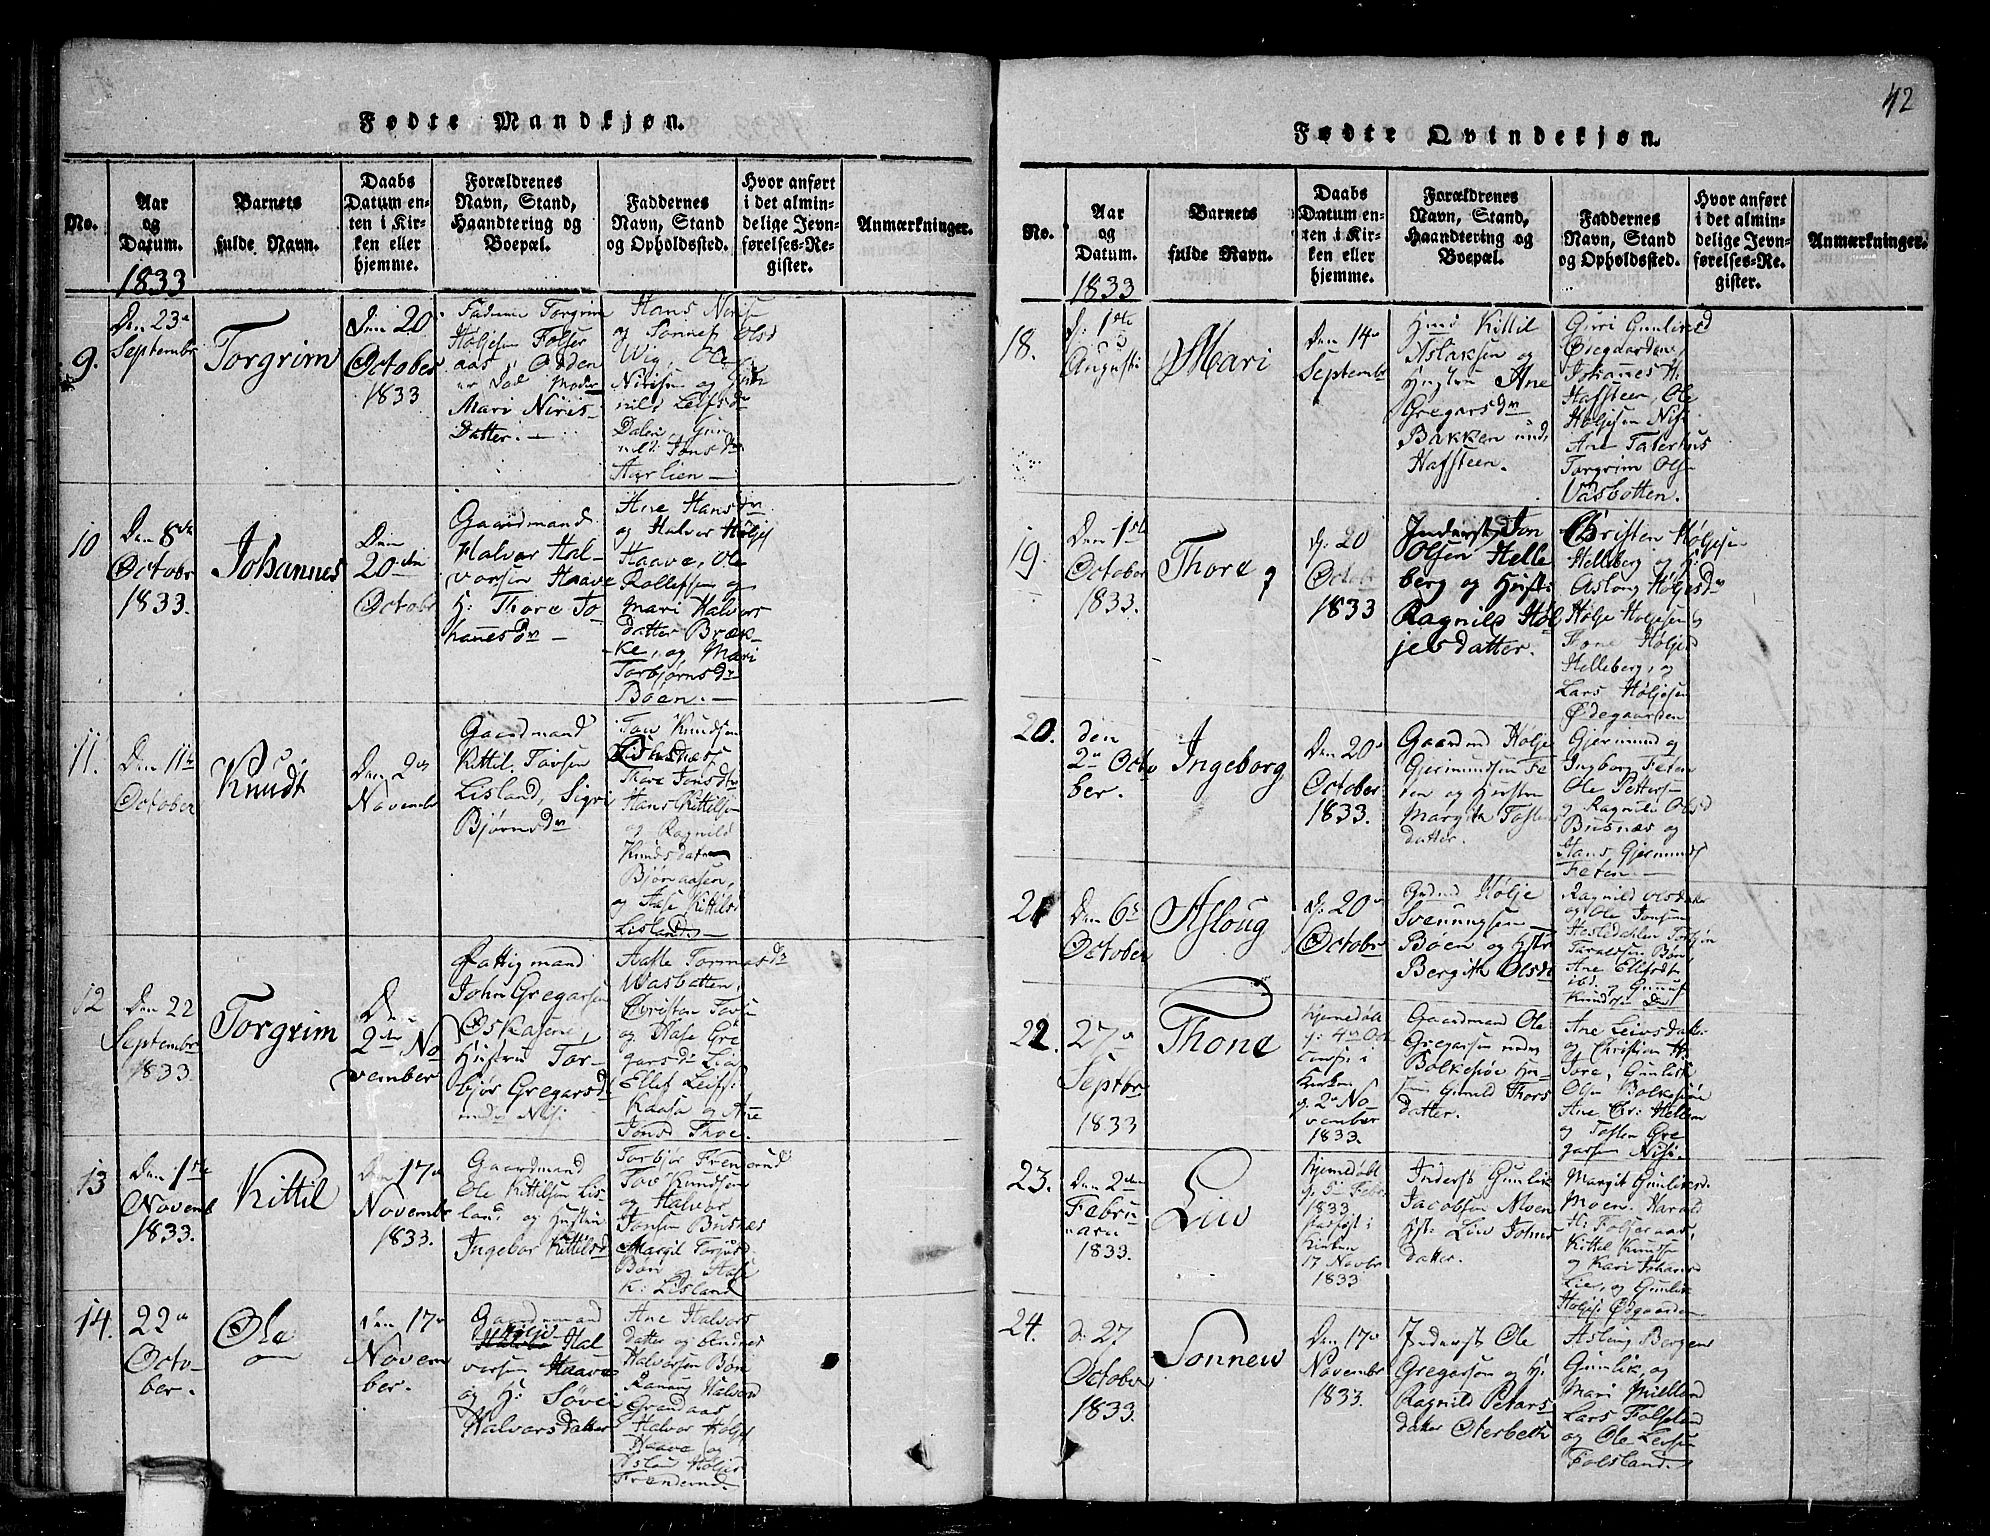 42
Fødte Mandkjøn.
No.
Aar
og
Datum.
1833
Barnets
fulde Navn.
Daabs
Datum en-
ten i Kir-
ken eller
hjemme.
Forældrenes
Navn, Stand,
Haandtering og
Boepæl.
Faddernes
Navn, Stand
og Opholdssted.
Hvor anført
i det almin-
delige Jevn-
førelses-Re-
gister.
Anmærkninger.
9.
Den 23
Septembr
Torgrim
Den 20
October
1833
Torgrim
Høljesen Folser
aas,
er Død Moder
Mari Niris-
Datter. —
Hans Niris
og Sonnef Olsd
Wig, Ole
Nirisen og
nild Leifsd
Dalen, Gun
nild Jonsd
Aarlien —
10
Den 8de
Octobr
1833.
Johannes
Den
20den
Octobr
Gaardmand
Halvor Hal-
vorsen Haave
H: Thore Jo-
hanesdr —
Ane Hansdr
og Halvor Høljes
Haave, Ole
Rollefsen og
Mari Halvors
datter Bræk-
ke, og Mari
Torbjørnsdr
Bøen. —
11.
Den 11te
October
Knudt
Den 2den
Novembr
Gaardmand
Kittil Tovsen
Lisland, Sigri
Bjørnsdr
Tov Knudsen
Thore Jonsdr
Hans Kittilsen
og Ragnild
Knudsdatter
Bjørnaasen,
og Aase Kittilsd
Lisland. —
12
Den 22
Septembr
1833.
Torgrim
Den
2den No
vember
Fattigmand
John Gregarsen
Oskasene
Hustru Tor-
bjør Gregarsd
under Nisi
Aasle Tormosdr
Wasbotten,
Christen Tovs
og Aase Gre
garsdr Lia,
Ellef Leifs:
Kaasa og Ane
Jonsd Thoe.
13
Den 1ste
Novemb
1833.
Kittil
Den 17
Novembr
1833.
Gaardmand
Ole Kittilsen Lis-
land og Hustru
Ingebor Kittilsd
Torbjør Frengerud
Tov Knudsen
og Halvor
Jonsen Busnæs
Margit Torjusd
Bøn og Aase
K: Lisland
14.
22
Octo-
ber.
Ole
den 17
Novem
ber.
Gaardmand
Hølje
Hal-
vorsen Haave
og H: Søvei
Halvorsdatter
Ane Halvors
datter og
Halvorsen Bøn
Halvorsd
Grandaas
Halvor Høljes
Haave og
Aslau Høljesd
Frenderud
Fødte Qvindekjøn.
No.
Aar
og
Datum.
1833
Barnets
fulde Navn.
Daabs
Datum en-
ten i Kir-
ken eller
hjemme.
Forældrenes
Navn, Stand,
Haandtering og
Boepæl.
Faddernes
Navn, Stand
og Opholdssted.
Hvor anført
i det almin-
delige Jevn-
førelses-Re-
gister.
Anmærkninger.
18.
d: 1ste
Augusti
Mari
Den 14
Septembr
Kittil
Aslaksen og
Hustru Ane
Gregarsdr
Bakken und.
Hafsteen.
Guri Gunleksd
Øigaardene,
Johannes H:
Hafsteen, Ole
Høljesen Nisi
Ane Taterhus
Torgrim Ols
Vasbotten.
19.
Den 1ste
October
1833.
Thore
d: 20
Octobr
1833
Inderst Jon
Olsen Helle
berg og Hust:
Ragnild Høl
jesdatter.
Christen Høljesen
Helleberg og H:
Aslong Høljesdr
Hølje Høljesen
Tone Høljesd
Helleberg, og
Lars Høljesen
Ødegaarden
20.
den
2 Octo
ber.
Ingeborg
Den 20
October
1833.
Gaardmd Hølje
Gjermundsen Fe
ten og Hustru
Margith Tostens
datter.
Gjermund og
Ingborg Feten
Ole Petters
og Ragnild Olsd
Busnæs og
Hans Gjermunds
Feten.
21
Den 6te
October
Asloug
d: 20
Octobr
Hølje
Svennungsen —
Bøen og Hstr
Bergith Olsdr
Ragnild Olsdater
og Ole Jonsen
Hesledahlen Torbjøn
Taraldsen Bøn,
Ane Ellefsdtr
ibd. og Gunnuf
Knudsen
22.
27
Septbr
1833
Thone
hjemedøbt
Confir i
Kirken
d. 2 No
vember
1833.
Gaardmand Ole
Gregarsen under
Bolkesiøe Hu-
Gunild Thors
datter.
Ane Leivsdatr
og Christian H:
Tore, Gunlek
Olsen Bolkesiøe
Ane Chr: Hellem
og Tosten Gre
garsen Nisi.
23.
Den 2den
Febru
arii
1833.
Liv
hjemedøbt
d 5 Febr
1833.
i
Kirken
17 Novbr
1833
Inderst Gunlik
Jacobsen Moen
Hst. Liv Jolner
datter.
Margit Gunliksd.
Moen. Harald
H: Folseraas,
Kittel Knudsen
og Kari Johans
Lie, og Gunlek
Høljes Ødgaarden
24.
d: 27
October
1833.
Sonnew
Den 17
Novembr
1833.
Inderst Ole
Gregarsen og H:
Ragnild Petars
datter Oterbeth
Aslong Bergene
Gunlik, og
Mari Mieland
Lars Folseland
og Ole Leifsen
Folsland.